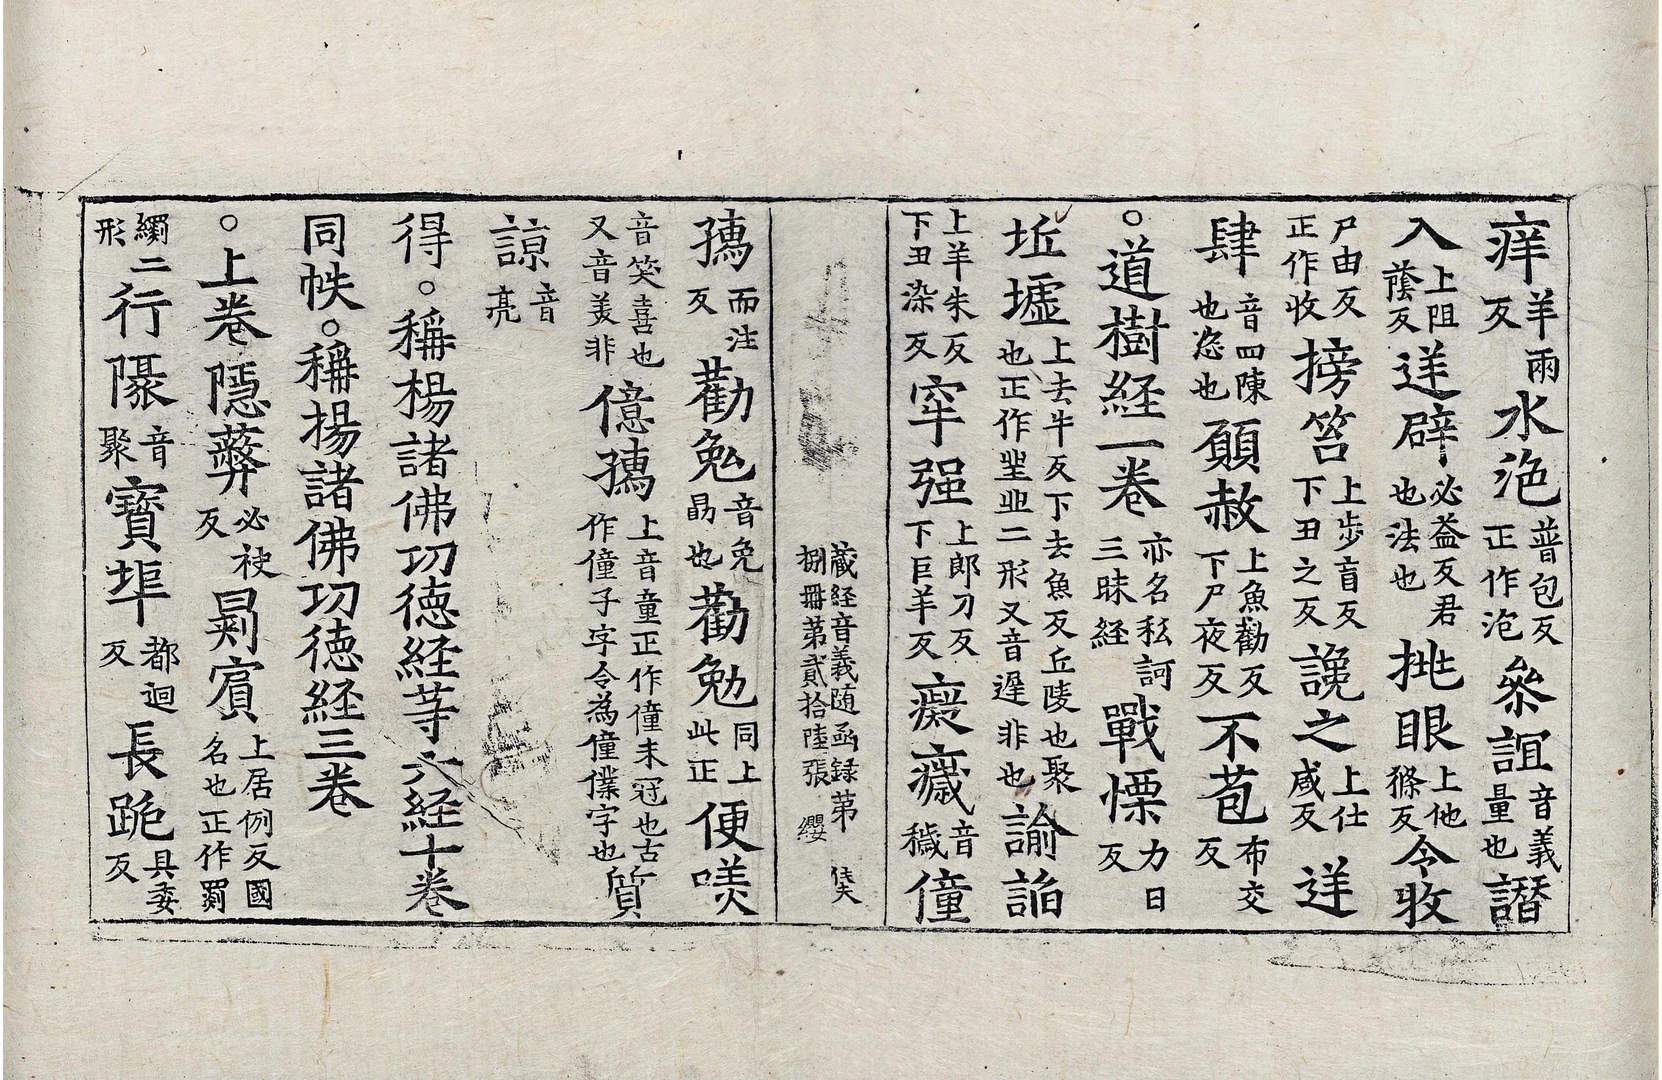 痒羊雨反水泡普包反正作泡叅誼音義量也譛
入上阻蔭反逬辟必益反君也法也挑眼上他條反令收
尸由反正作收搒笞上步盲反下丑之反讒之上仕咸反逬
肆音四陳也恣也願赦上魚勸反下尸夜反不苞布交反
○道樹経一卷亦名私訶三昧経戰慄力日反
坵墟上去牛反下去魚反丘陵也聚也正作㘳丠二形又音遲非也諭諂
上羊朱反下丑染反窂强上郎刀反下巨羊反癡癡音穢僮
蔵経音義随函録第捌冊第貳拾陸張 纓
孺而注反勸勉音免勗也勸勉同上此正便㗛
音笑喜也又音美非億孺上音童正作僮未冠也古作僮子字令為僮僕字也質
諒音亮
得○稱楊諸佛功德経等六経十卷
同帙○稱揚諸佛功德経三卷
○上卷隱蔽必袂反罽賓上居例反國名也正作罽
䌇二形行隊音聚寶埠都迴反長跪具委反